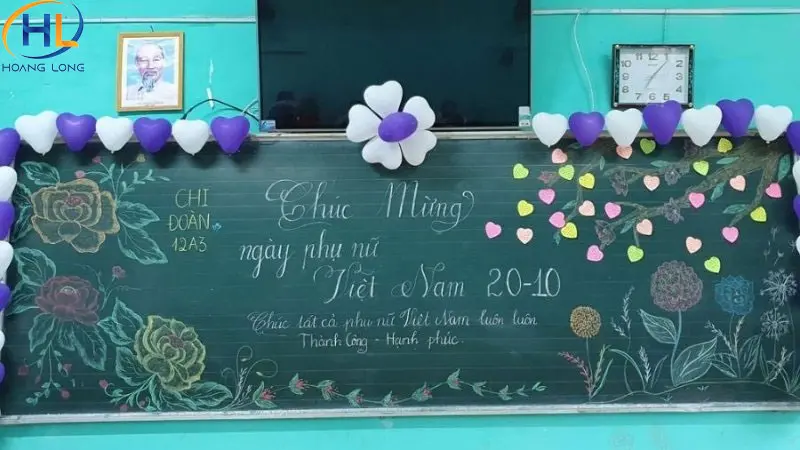 HL
HOANG LONG
CHI
ĐOÀN
12A3
Chúc Mừng
ngày phụ nữ
Việt Nam 20-10
Chúc tất cả phụ nữ Việt Nam luôn luôn
Thành Công - Hạnh phúc.